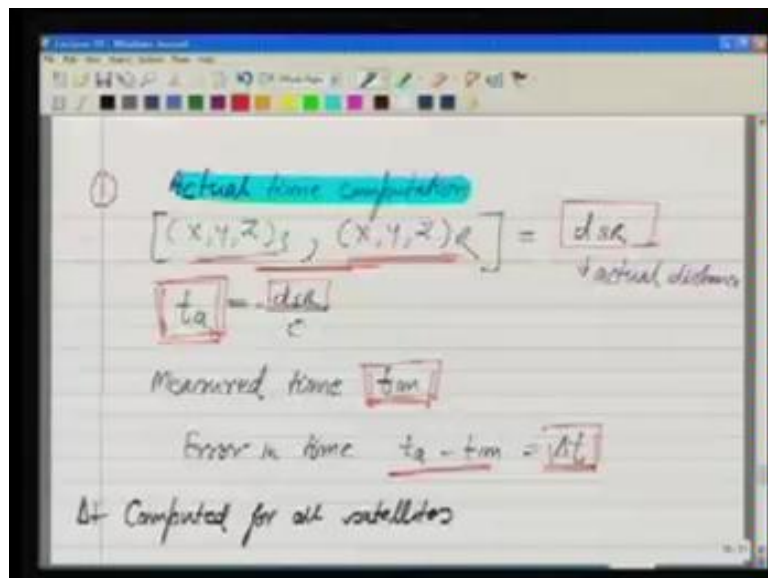 Windows Journal
① Actual time computation
[(X,Y,Z)s, (X,Y,Z)R] = dSR
↓ actual distance
ta = dSR / c
Measured time tm
Error in time ta - tm = Δt
Δt Computed for all satellites